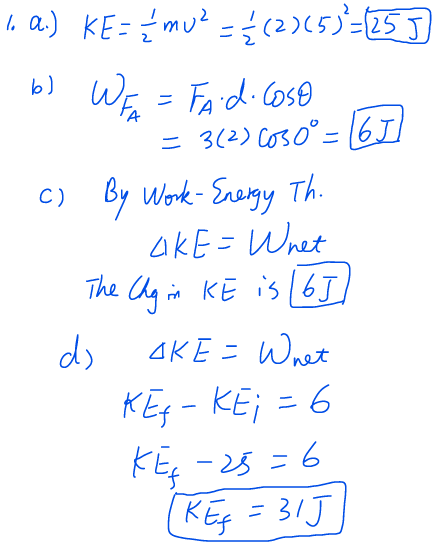 1. a.) KE = ½ mv² = ½ (2)(5)² = 25 J
b) W_{F_A} = F_A · d · Cosθ
= 3(2) Cos0° = 6J
c) By Work-Energy Th.
ΔKE = Wnet
The Chg in KE is 6J
d) ΔKE = Wnet
KE_f - KE_i = 6
KE_f - 25 = 6
KE_f = 31J